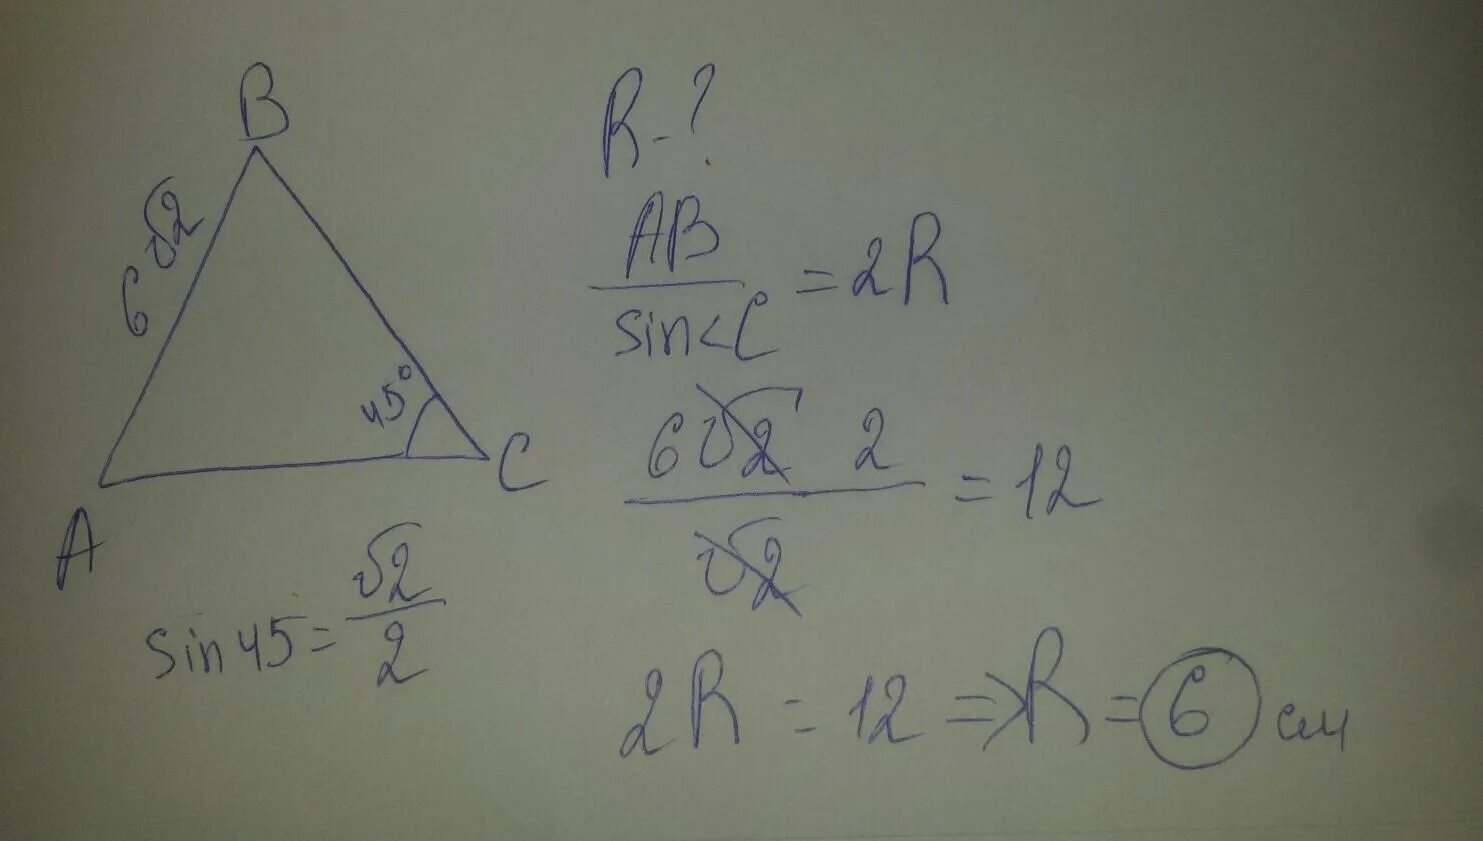 B
6√2
45°
A
C
sin45=√2/2
R-?
AB/sin<C = 2R
6√2 2/√2 = 12
2R = 12 => R = 6 см